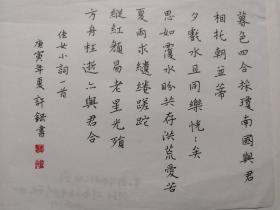 暮色四合採瓊南國與君
相托朝並蒂
夕戲水且同樂恍々矣
思如覆水盼共存洪荒愛若
夏雨求繾綣蹉跎
縱紅顏易老星光殞
方舟輕逝亦與君合
佳女小詞一首
庚寅年夏許鋕書